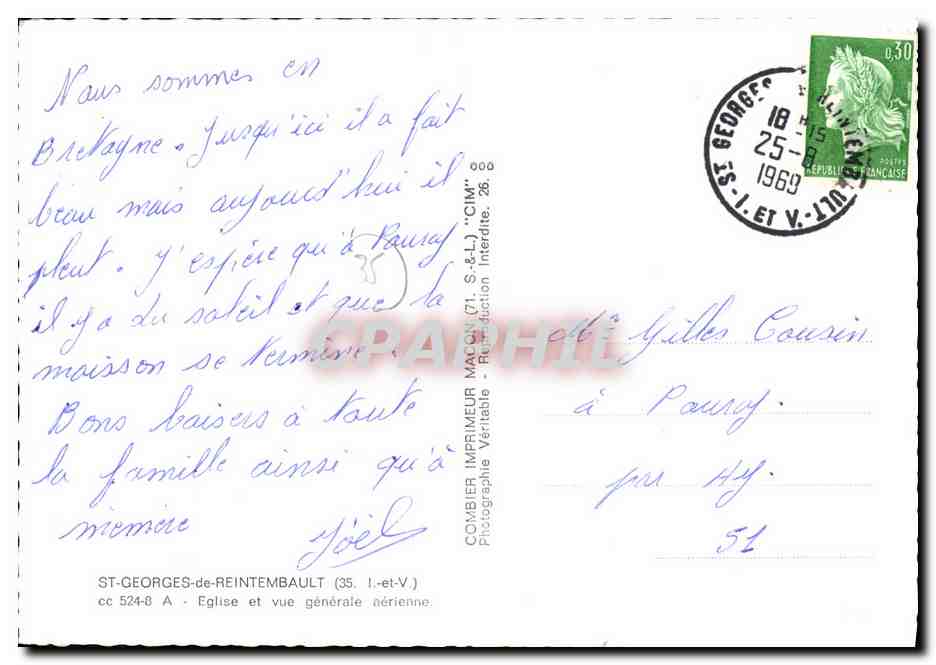 Nous sommes en
Bretagne. Jusqu'ici il a fait
beau mais aujourd'hui il
pleut. J'espère qu'à Pourcy
il y a du soleil et que la
moisson se termine.
Bons baisers à toute
la famille ainsi qu'à
mémère
Joël
35
ST-GEORGES-de-REINTEMBAULT (35. I.-et-V.)
cc 524-8 A - Eglise et vue générale aérienne
COMBIER IMPRIMEUR MACON (71. S.-&-L.) "CIM"
Photographie Véritable - Reproduction Interdite. 26.
CPAPHIL
0,30
POSTES
REPUBLIQUE FRANÇAISE
ST GEORGES REINTEMBAULT
18 H -15
25-8
1969
- I. ET V. -
Mr Gilles Cousin
à Pourcy.
par Ay.
51